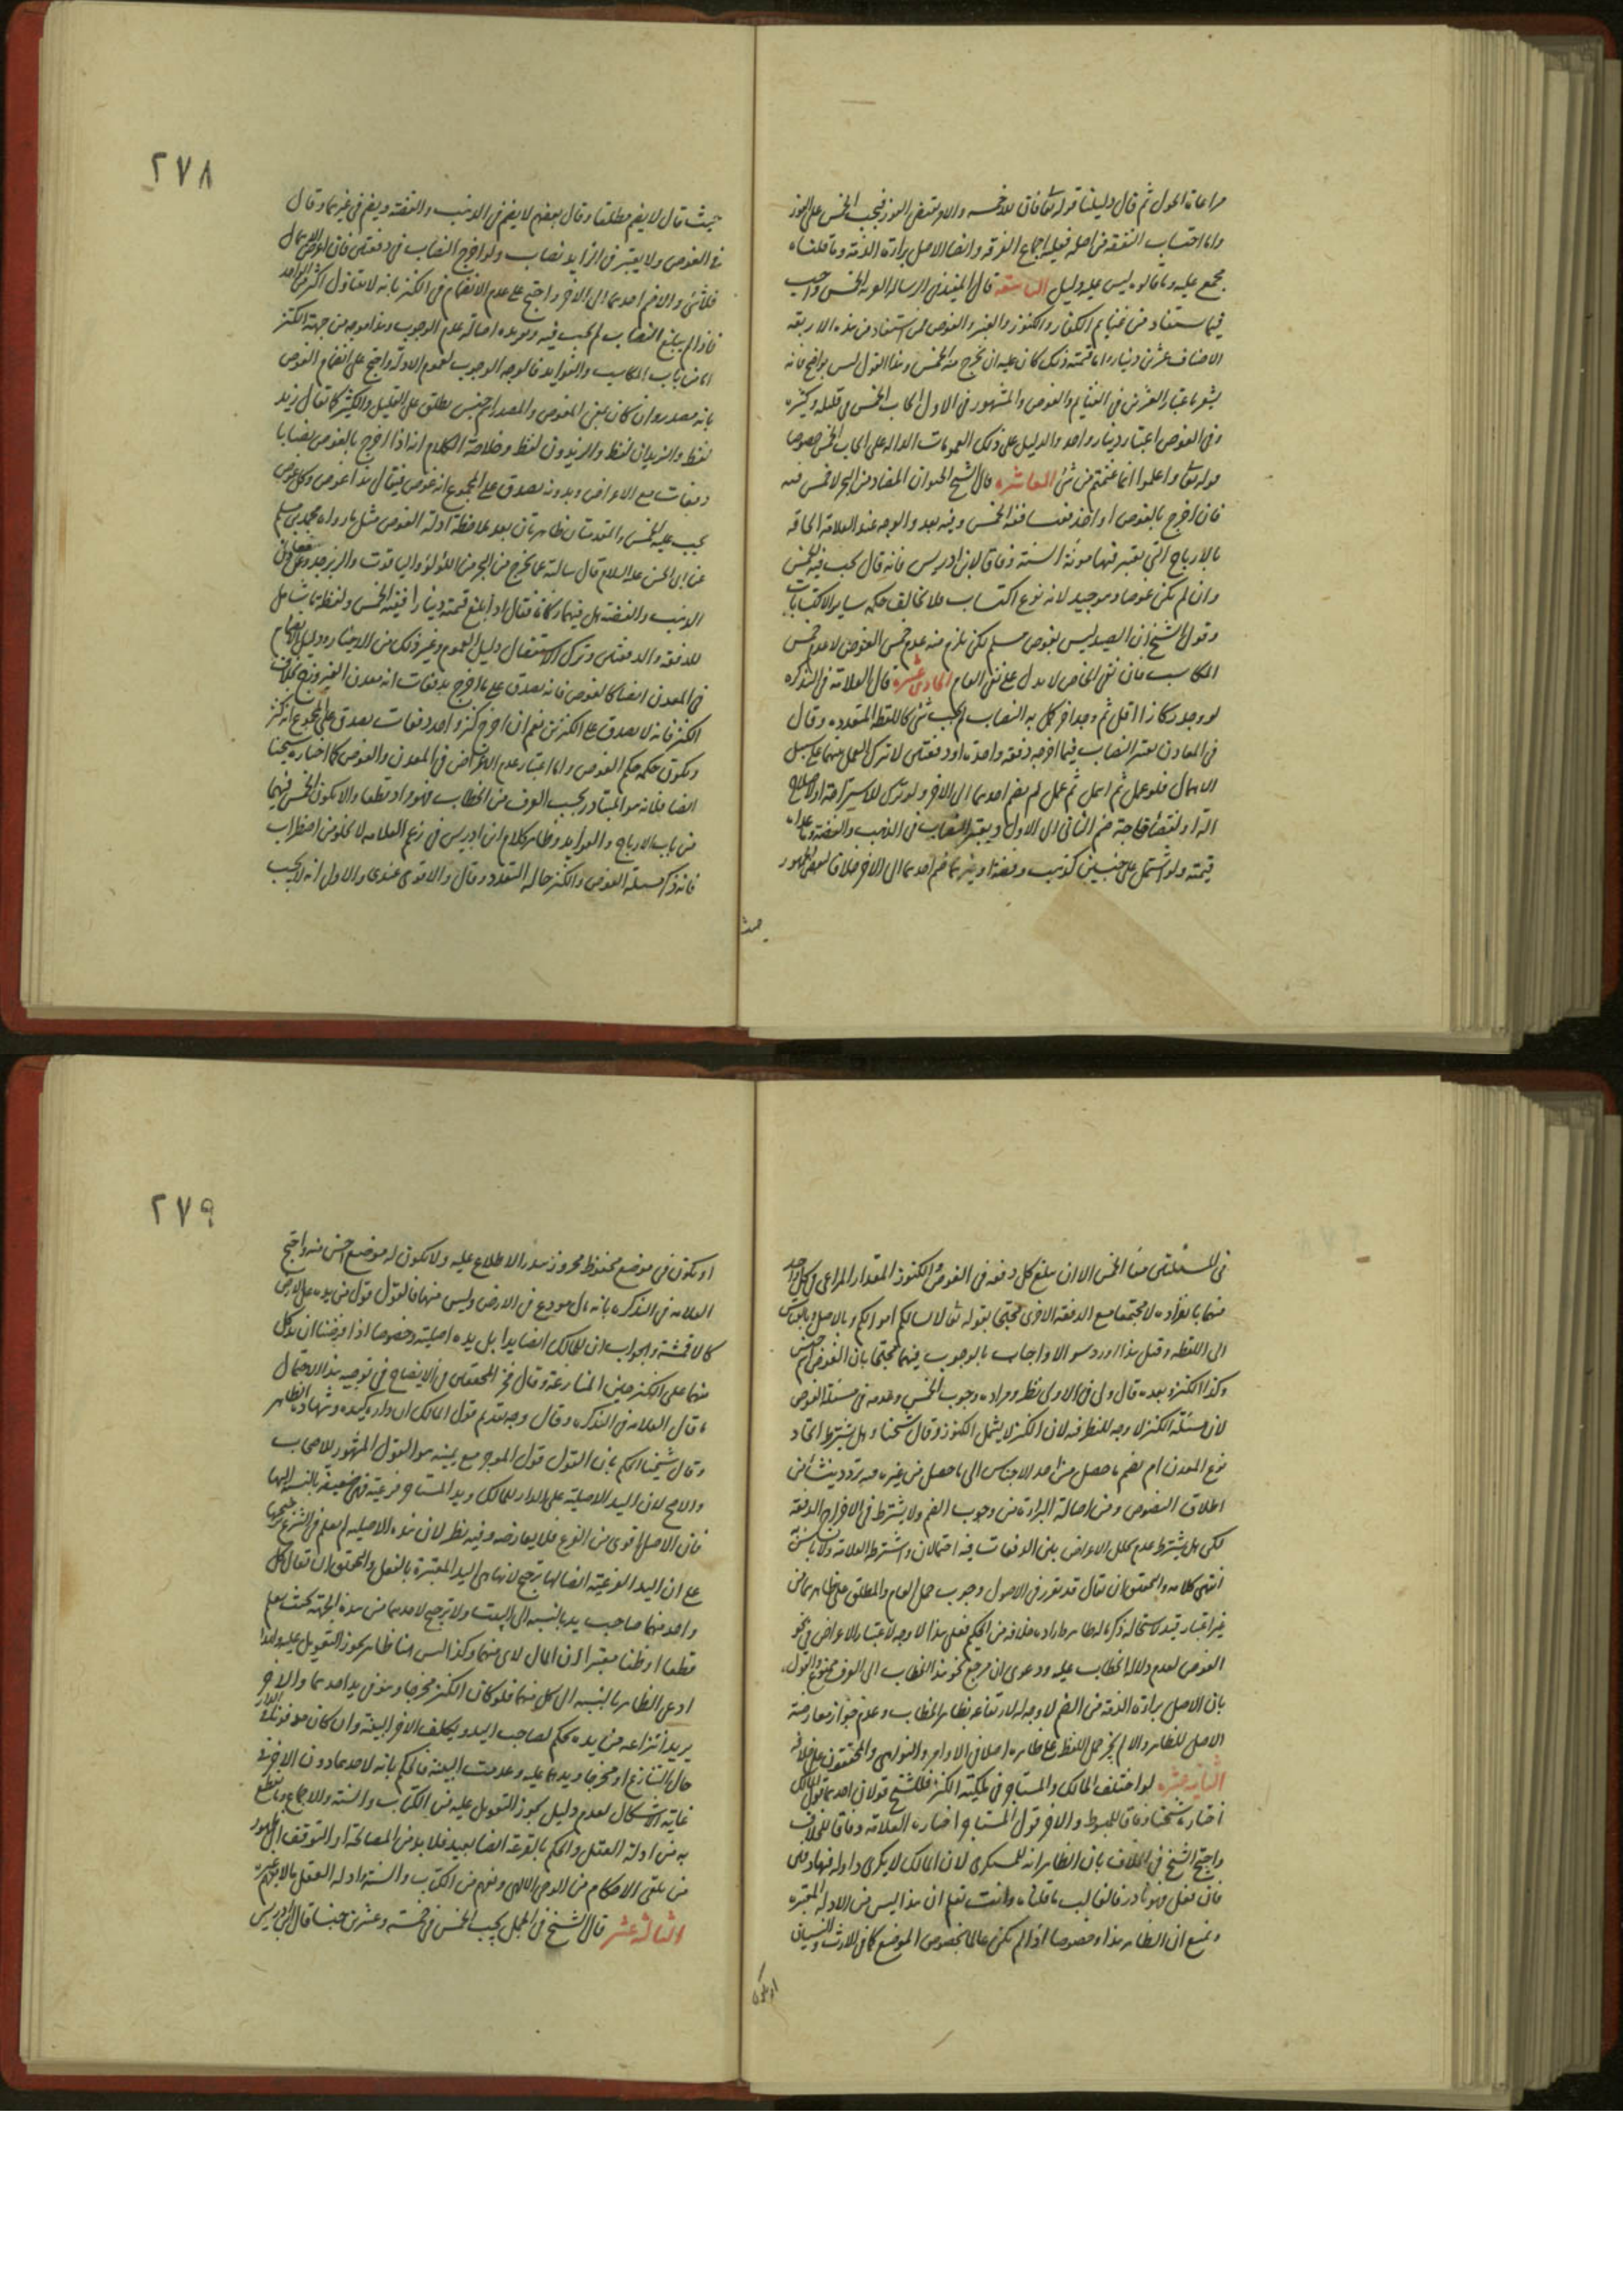 مراعاة الحول ثم قال دليلنا قوله تعالى فان لله خمسه والامر يقتضى الفور فيجب الخمس على الفور
واما احتساب النفقة من اصله فعليه اجماع الفرقة وايضا الاصل براءة الذمة وما قلناه
مجمع عليه وما قالوه ليس عليه دليل التاسعة قال المفيد فى الرسالة العزية الخمس واجب
فيما يستفاد من غنايم الكفار والكنوز والعنبر والغوص فمن استفاد من هذه الاربعة
الاصناف عشرين دينارا او ما قيمته ذلك كان عليه ان يخرج منه الخمس وهذا القول ليس بواضح فانه
يشعر باعتبار العشرين فى الغنايم والغوص والمشهور فى الاول ايجاب الخمس فى قليله وكثيره
وفى الغوص اعتبار دينار واحد والدليل على ذلك العمومات الدالة على ايجاب الخمس خصوصا
قوله تعالى واعلموا انما غنمتم من شئ العاشرة قال الشيخ الحيوان المصاد من البحر لا خمس فيه
فان اخرج بالغوص او اخذ قفيا ففيه الخمس وفيه بعد والوجه عند العلامة الحاقه
بالارباح التى يعتبر فيها مونة السنة وفاقا لابن ادريس فانه قال يجب فيه الخمس
وان لم يكن غوصا وهو جيد لانه نوع اكتساب فلا يخالف حكمه ساير الاكتسابات
وقول الشيخ ان الصيد ليس بغوص مسلم لكن يلزم منه عدم خمس الغوص لا عدم خمس
المكاسب فان نفى الخاص لا يدل على نفى العام الحادى عشرة قال العلامة فى التذكرة
لو وجد ركازا اقل ثم وجد اخر كمل به النصاب لم يجب شئ كاللقطة المتعددة وقال
فى المعادن يعتبر النصاب فيما اخرجه دفعة واحدة او دفعتين لا يترك العمل بينهما على سبيل
الاهمال فلو عمل ثم اهمل ثم عمل لم يضم احدهما الى الاخر ولو ترك للاستراحة او لاصلاح
الة او لقضاء حاجة ضم الثانى الى الاول ويعتبر النصاب فى الذهب والفضة وما عداه
قيمته ولو اشتمل على جنسين كذهب وفضة او غيرهما ضم احدهما الى الاخر خلافا لبعض الجمهور
حيث
٢٧٨
حيث قال لا يضم مطلقا وقال بعضهم لا يضم فى الذهب والفضة ويضم فى غيرهما وقال
فى الغوص ولا يعتبر فى الزايد نصاب ولو اخرج النصاب فى دفعتين فان اعرض للاهمال
فلا شئ والا ضم احدهما الى الاخر واحتج على عدم الانضمام فى الكنز بانه لا يتناول اكثر من الواحد
فاذا لم يبلغ النصاب لم يجب فيه ويؤيده اصالة عدم الوجوب وهذا موجه من جهة الكنز
اما من باب المكاسب والفوايد فالوجه الوجوب لعموم الادلة واحتج على انضمام الغوص
بانه مصدر وان كان بمعنى المغوص والمصدر اسم جنس يطلق على القليل والكثير كما يقال زيد
لفظ والزيدان لفظ والزيدون لفظ وخلاصة الكلام انه اذا اخرج بالغوص نصابا
دفعات مع الاعراض وبدونه يصدق على المجموع انه غوص فيقال هذا غوص وكل غوص
يجب عليه الخمس والمقدمتان ظاهرتان بعد ملاحظة ادلة الغوص مثل ما رواه محمد بن مسلم
عن ابى الحسن عليه السلام قال سالته عما يخرج من البحر من اللؤلؤ والياقوت والزبرجد وعن معادن
الذهب والفضة هل فيها زكاة فقال اذا بلغ قيمته دينارا ففيه الخمس ولفظة ما شامل
للدفعة والدفعتين وترك الاستفصال دليل العموم وغير ذلك من الاخبار ودليل الانضمام
فى المعدن ايضا كالغوص فانه يصدق على ما اخرج بدفعات انه معدن الفيروزج بخلاف
الكنز فانه لا يصدق على الكنزين نعم ان اخرج كنز واحد دفعات يصدق على المجموع انه كنز
ويكون حكمه حكم الغوص واما اعتبار عدم الاعراض فى المعدن والغوص كما اختاره شيخنا
ايضا فلانه هو المتبادر بحسب العرف من الخطاب فهو مراد قطعا والا يكون الخمس فيهما
من باب الارباح والفوايد وظاهر كلام ابن ادريس فى زعم العلامة لا يخلو من اضطراب
فانه ذكر مسئلة الغوص والكنز حالة التعدد وقال والاقوى عندى والاول انه لا يجب
فى المسئلتين معا الخمس الا ان يبلغ كل دفعة فى الغوص والكنوز المقدار المراعى فى كل واحد
منهما بانفراده لا مجتمعا مع الدفعة الاخرى محتجا بقوله تعالى لا يسالكم اموالكم وبالاصل وبالقياس
الى اللقطة وقبل هذا اورد سؤالا واجاب بالوجوب فيهما محتجا بان الغوص اسم جنس
وكذا الكنز وبعده قال ولى فى الاولى نظر ومراده وجوب الخمس وعدمه فى مسئلة الغوص
لان مسئلة الكنز لا وجه للنظر فيه لان الكنز لا يشمل الكنوز وقال شيخنا وهل يشترط اتحاد
نوع المعدن ام يضم ما حصل من احد الاجناس الى ما حصل من غيره فيه تردد ينشأ من
اطلاق النصوص ومن اصالة البراءة من وجوب الضم ولا يشترط فى الاخراج الدفعة
لكن هل يشترط عدم تخلل الاعراض بين الدفعات فيه احتمالان واشترط العلامة ولا باس به
انتهى كلامه والتحقيق ان يقال قد تقرر فى الاصول وجوب حمل العام والمطلق على ظاهرهما من
غير اعتبار قيد لاستحالة ذكر ما له ظاهر مع ارادة خلافه من الحكيم فعلى هذا لا وجه لاعتبار الاعراض فى نحو
الغوص لعدم دلالة الخطاب عليه ودعوى ان مرجع نحو هذا الخطاب الى العرف ممنوع والقول
بان الاصل براءة الذمة من الضم لا وجه له لارتفاعه بظاهر الخطاب وعدم جواز معارضة
الاصل للظاهر والا لم يجز حمل اللفظ على ظاهره اصلا فى الاوامر والنواهى والمحققون على خلافه
الثانية عشرة لو اختلف المالك والمستاجر فى ملكية الكنز فللشيخ قولان احدهما قول المالك
اختاره شيخنا وفاقا للمبسوط والاخر قول المستاجر اختاره العلامة وفاقا للخلاف
واحتج الشيخ فى الخلاف بان الظاهر انه للمكترى لان المالك لا يكرى دارا وله فيها دفين
فان فعل فهو نادر فالغالب ما قلناه وانت تعلم ان هذا ليس من الادلة المعتبرة
ونمنع ان الظاهر هذا وخصوصا اذا لم يكن عالما بخصوص الموضع كما فى الارث والنسيان
او يكون
٢٧٩
او يكون فى موضع محفوظ محروز يندر الاطلاع عليه ولا يكون له موضع احسن منه واحتج
العلامة فى التذكرة بانه مال مودع فى الارض وليس منها فالقول قول من يده على الارض
كالاقمشة والجواب ان للمالك ايضا يدا بل يده اصلية وخصوصا اذا فرضنا ان يد كل
منهما على الكنز حين المنازعة وقال فخر المحققين فى الايضاح فى توجيه هذا الاحتمال
ما قال العلامة فى التذكرة وقال وجه تقديم قول المالك ان داره كيده وشهادة الظاهر
وقال شيخنا الحكم بان القول قول الموجر مع يمينه هو القول المشهور للاصحاب
والاصح لان اليد الاصلية على الدار للمالك ويد المستاجر فرعية فهى ضعيفة بالنسبة اليها
فان الاصل اقوى من الفرع فلا يعارضه وفيه نظر لان هذه الاصلية لم يعلم فى الشرع ترجيحها
على ان اليد الفرعية ايضا لها ترجيح لانها هى اليد المعتبرة بالفعل والتحقيق ان يقال كل
واحد منهما صاحب يد بالنسبة الى البيت ولا ترجيح لاحدهما من هذه الجهة بحيث يعلم
قطعا او ظنا معتبرا ان المال لاى منهما وكذا ليس هنا ظاهر يجوز التعويل عليه ولهذا
ادعى الظاهر بالنسبة الى كل منهما فلو كان الكنز مخرجا وهو فى يد احدهما والاخر
يريد انتزاعه من يده يحكم لصاحب اليد ويكلف الاخر البينة وان كان مدفونا فى الدار
حال التنازع او مخرجا ويدهما عليه وعدمت البينة فالحكم بانه لاحدهما دون الاخر فى
غاية الاشكال لعدم دليل يجوز التعويل عليه من الكتاب والسنة والاجماع وما يقطع
به من ادلة العقل والحكم بالقرعة ايضا بعيد فلا بد من المصالحة او التوقف الى ظهور
من تلقى الاحكام من الوحى الالهى وفهم من الكتاب والسنة وادلة العقل ما لا يفهم غيره
الثالثة عشر قال الشيخ فى الجمل يجب الخمس فى خمسة وعشرين جنسا قال ابن ادريس